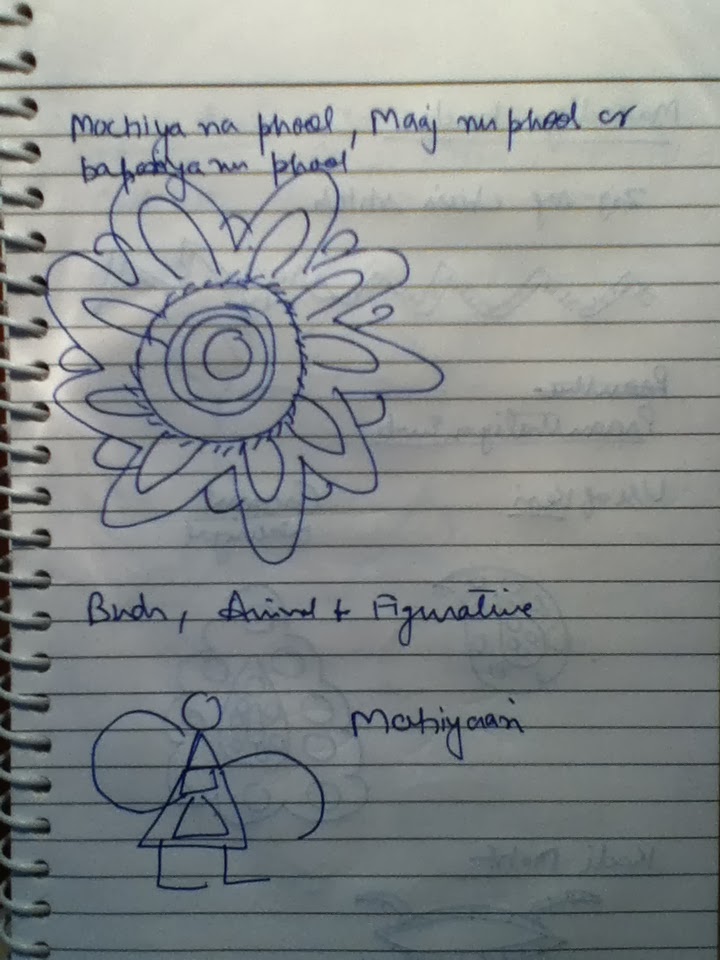 Mochiya na phool, Maaj nu phool or
nu phool
Birds, Animal + Figurative
Mahiyaari